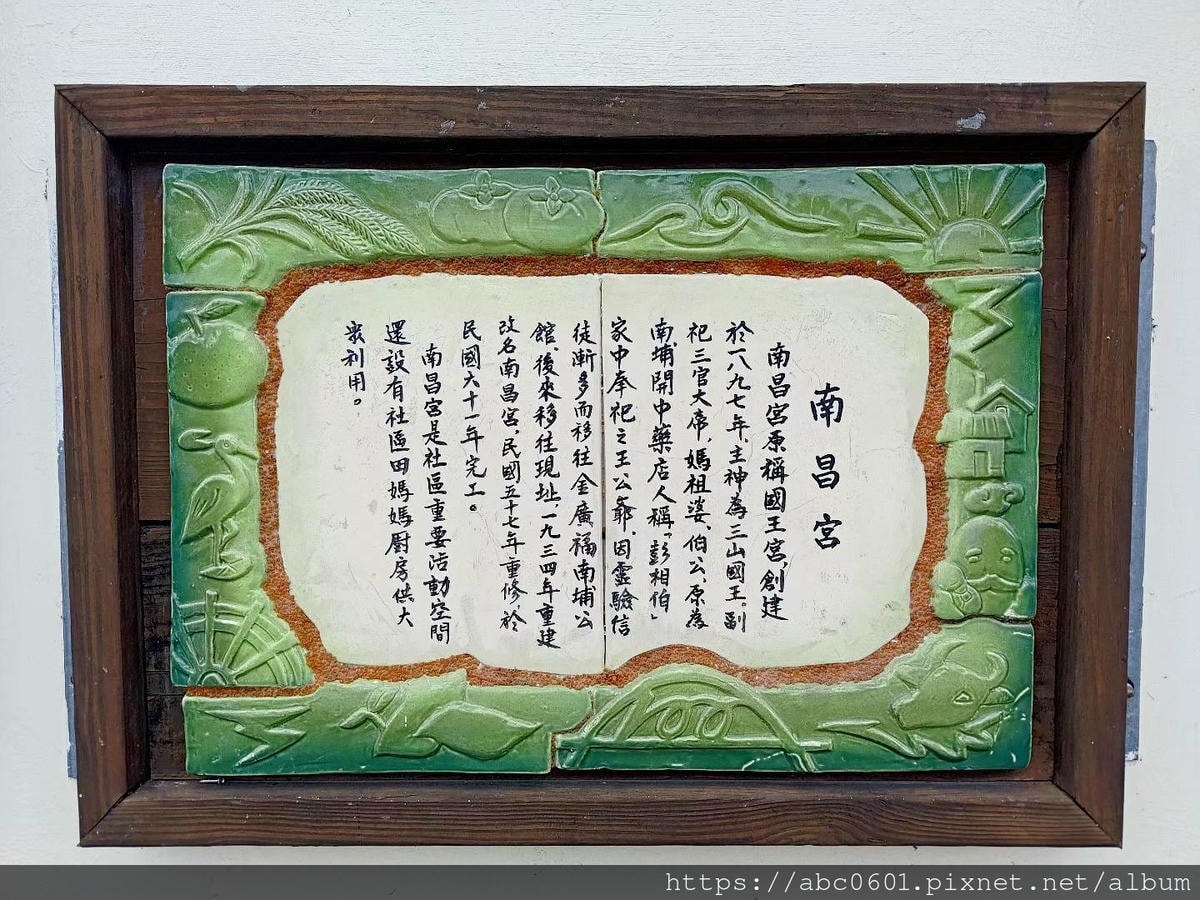 南昌宮
南昌宮原稱國王宮,創建
於一八九七年,主神為三山國王。副
祀三官大帝,媽祖婆、伯公,原為
南埔開中藥店人稱「彭相伯」
家中奉祀之王公爺,因靈驗信
徒漸多而移往金廣福南埔公
館,後來移往現址,一九三四年重建
改名南昌宮,民國五十七年重修,於
民國六十一年完工。
南昌宮是社區重要活動空間
還設有社區田媽媽廚房供大
眾利用。
https://abc0601.pixnet.net/album